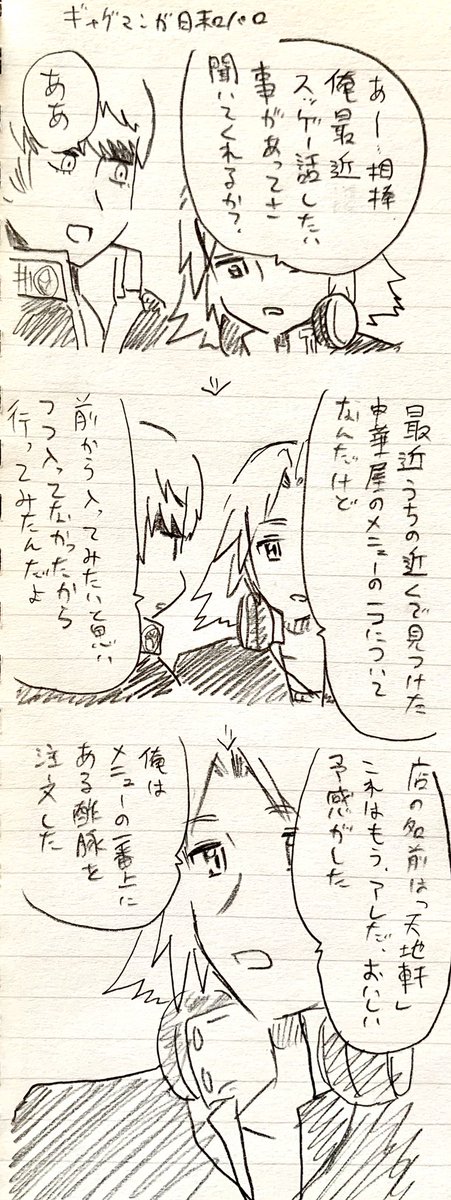 ギャグマンガ日和パロ
あー…相棒
俺最近
スッゲー話したい
事があってさ
聞いてくれるか?
ああ
最近うちの近くで見つけた
中華屋のメニューの一つについて
なんだけど
前から入ってみたいと思い
つつ入ってなかったから
行ってみたんだよ
店の名前はっ「天地軒」
これはもう、アレだ、おいしい
予感がした
俺は
メニューの一番上に
ある酢豚を
注文した